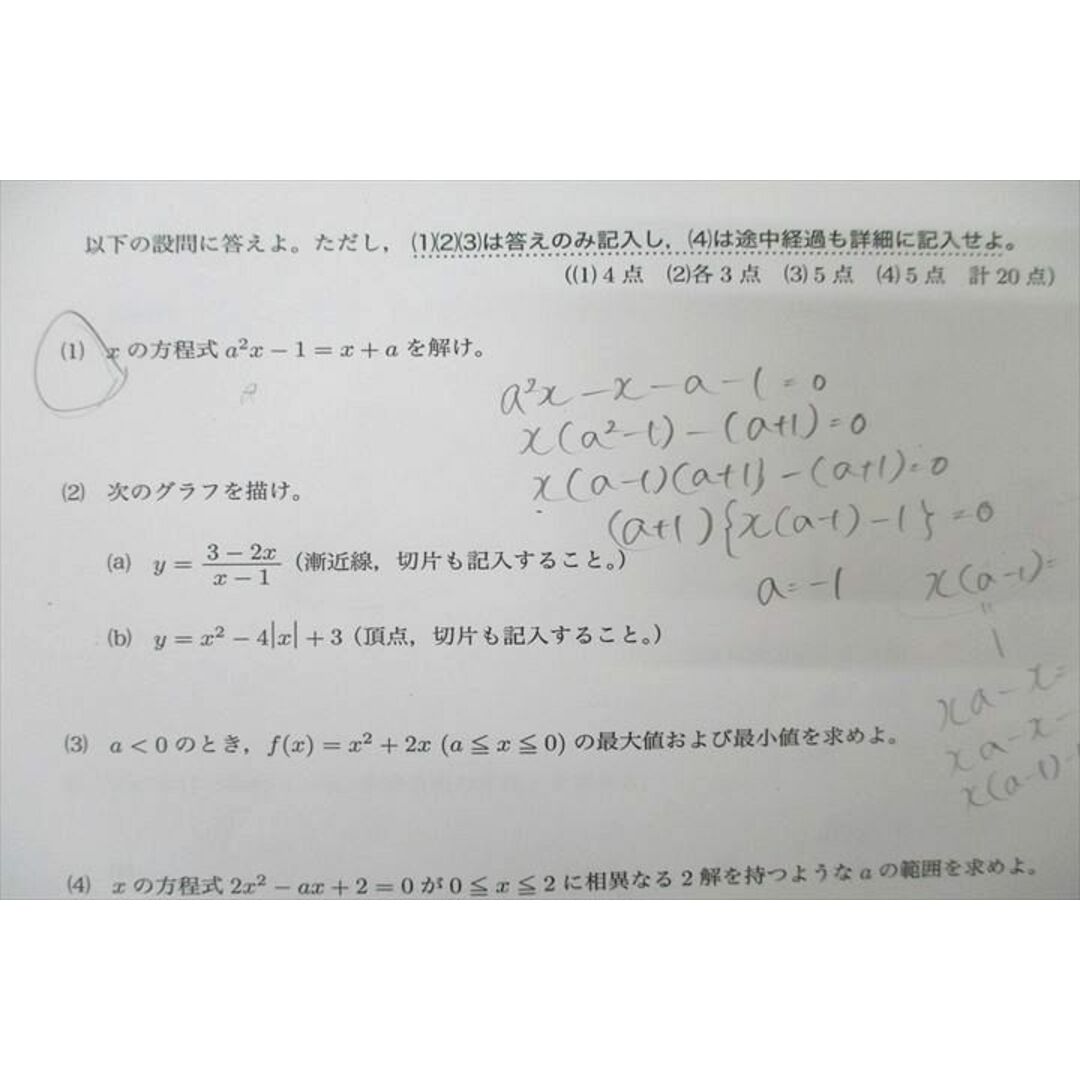 以下の設問に答えよ。ただし,(1)(2)(3)は答えのみ記入し,(4)は途中経過も詳細に記入せよ。
((1) 4 点 (2)各 3 点 (3) 5 点 (4) 5 点 計 20 点)
(1) x の方程式 a²x − 1 = x + a を解け。
a²x − x − a − 1 = 0
x(a²−1) − (a+1) = 0
x(a−1)(a+1) − (a+1) = 0
(a+1){x(a−1)−1} = 0
a = −1 x(a−1) =
1
xa − x =
xa − x −
x(a−1) −
(2) 次のグラフを描け。
(a) y = (3 − 2x)/(x − 1) (漸近線,切片も記入すること。)
(b) y = x² − 4|x| + 3 (頂点,切片も記入すること。)
(3) a < 0 のとき,f(x) = x² + 2x (a ≦ x ≦ 0) の最大値および最小値を求めよ。
(4) x の方程式 2x² − ax + 2 = 0 が 0 ≦ x ≦ 2 に相異なる 2 解を持つような a の範囲を求めよ。